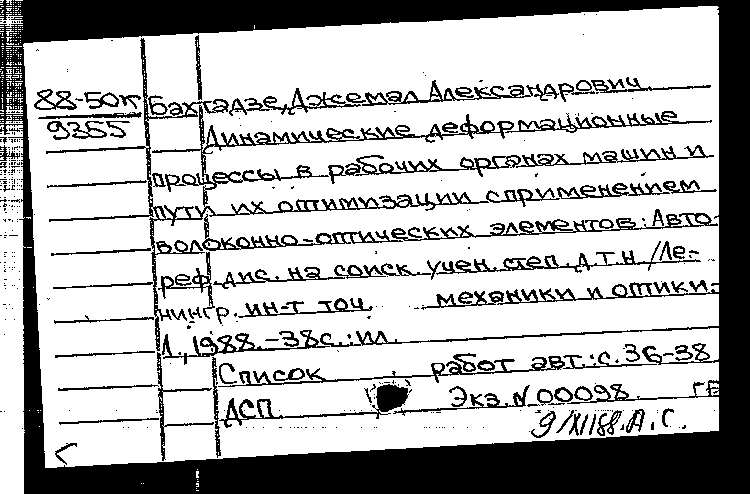 88-50к Бахтадзе, Джемал Александрович
9365 Динамические деформационные
процессы в рабочих органах машин и
пути их оптимизации с применением
волоконно-оптических элементов: Авто-
реф. дис. на соиск. учен. степ. д.т.н /Ле-
нингр. ин-т точ. механики и оптики.-
Л., 1988.-38с.:ил.
Список работ авт.: с. 36-38
ДСП. Экз. N 00098. ГБ
9/XI 88. А. С.